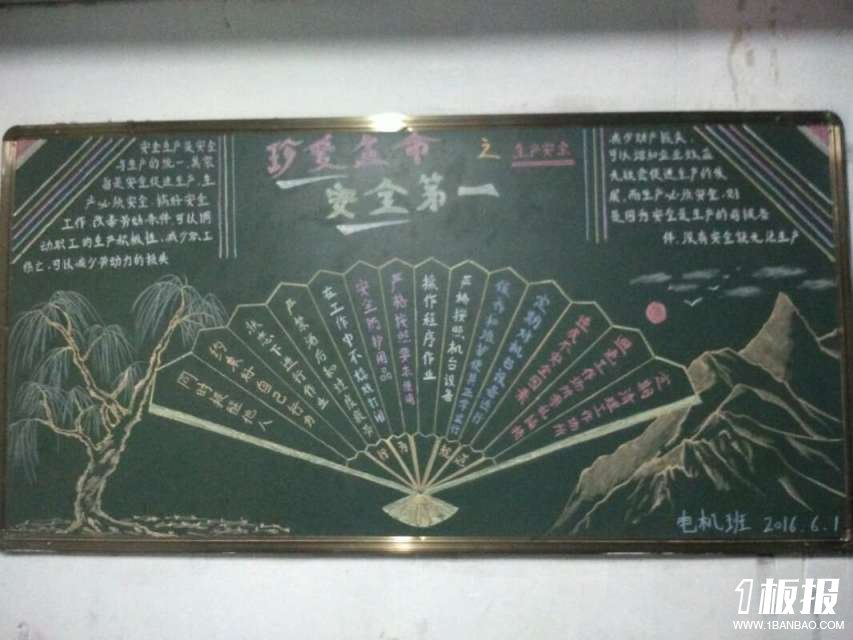 珍爱生命 之 生产安全
安全第一
安全生产是安全
与生产的统一,其宗
旨是安全促进生产,生
产必须安全。搞好安全
工作,改善劳动条件可以调
动职工的生产积极性,减少职工
伤亡,可以减少劳动力的损失
减少财产损失,
可以增加企业效益
无疑会促进生产的发
展,而生产必须安全,则
是因为安全是生产的前提条
件,没有安全就无法生产
同时提醒他人
约束好自己行为
状态下进行作业
严禁酒后和过度疲劳
在工作中不嬉戏打闹
安全防护用品
严格按照要求穿戴
操作程序作业
严格按照机台设备
定期清理工作场所
行为规范
电机班 2016.6.1
1板报
WWW.1BANBAO.COM